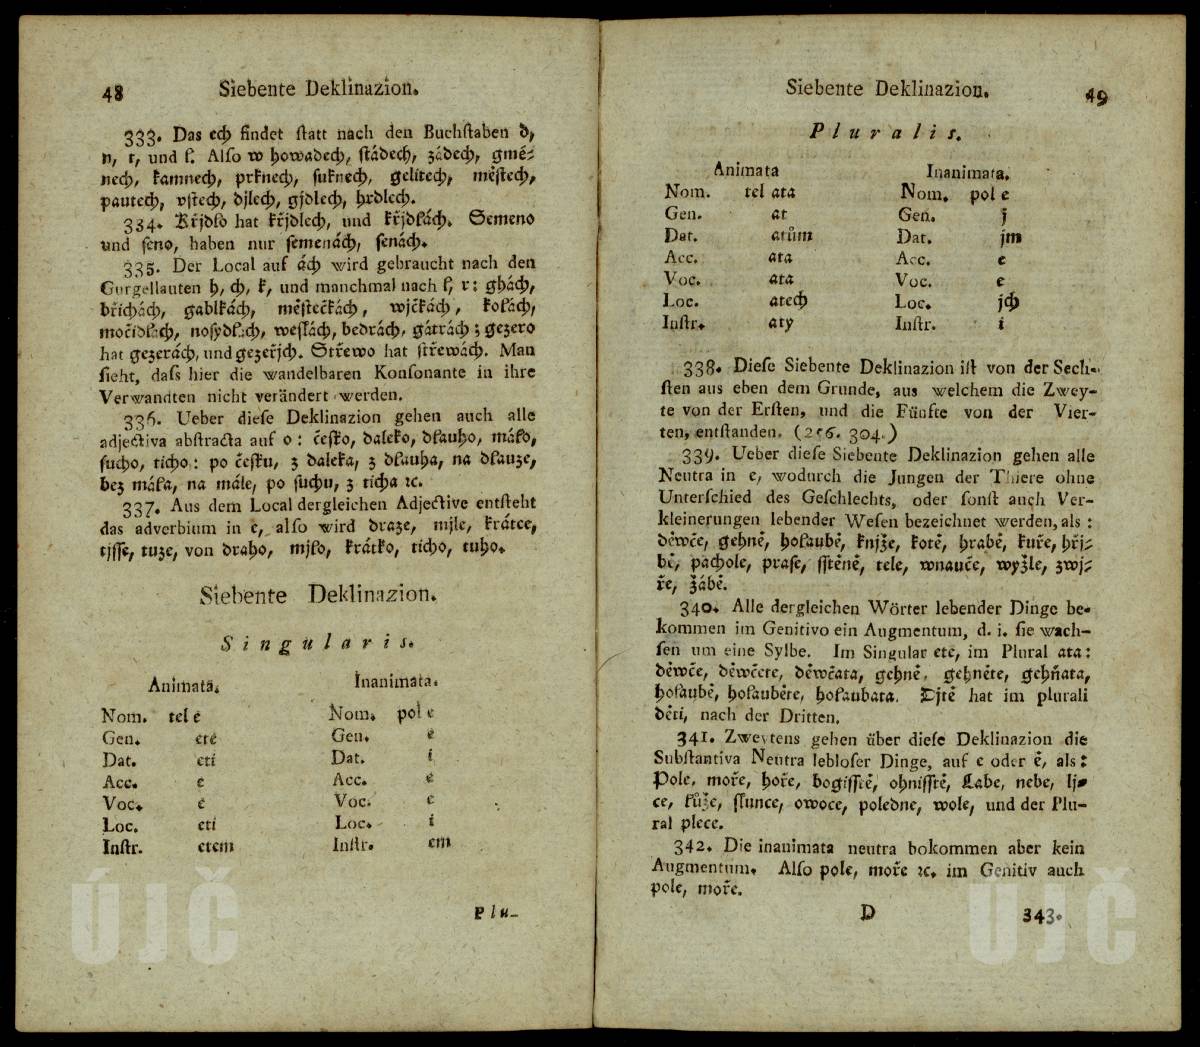 48 Siebente Deklinazion.
333. Das ech findet ſtatt nach den Buchſtaben d,
n, t, und ſ. Alſo w howadech, ſtádech, zádech, gmé-
nech, kamnech, prknech, ſuknech, gelitech, měſtech,
pautech, vſtech, djlech, gjdlech, hrdlech.
334. Křjdlo hat křjdlech, und křjdlách. Semeno
und ſeno, haben nur ſemenách, ſenách.
335. Der Local auf ách wird gebraucht nach den
Gurgellauten h, ch, k, und manchmal nach ſ, r: ghách,
břichách, gablkách, měſtečkách, wjčkách, kolách,
močidlách, noſydlách, weſlách, bedrách, gátrách; gezero
hat gezerách, und gezeřjch. Střewo hat ſtřewách. Man
ſieht, daſs hier die wandelbaren Konſonante in ihre
Verwandten nicht verändert werden.
336. Ueber dieſe Deklinazion gehen auch alle
adjectiva abſtracta auf o: čeſko, daleko, dlauho, málo,
ſucho, ticho: po čeſku, z daleka, z dlauha, na dlauze,
bez mála, na mále, po ſuchu, z ticha ꝛc.
337. Aus dem Local dergleichen Adjective entſteht
das adverbium in e, alſo wird draze, mjle, krátce,
tjſſe, tuze, von draho, mjlo, krátko, ticho, tuho.
Siebente Deklinazion.
Singularis.
Animata. Inanimata.
Nom. tel e Nom. pol e
Gen. ete Gen. e
Dat. eti Dat. i
Acc. e Acc. e
Voc. e Voc. e
Loc. eti Loc. i
Inſtr. etem Inſtr. em
Plu-
Siebente Deklinazion. 49
Pluralis.
Animata Inanimata.
Nom. tel ata Nom. pol e
Gen. at Gen. j
Dat. atům Dat. jm
Acc. ata Acc. e
Voc. ata Voc. e
Loc. atech Loc. jch
Inſtr. aty Inſtr. i
338. Dieſe Siebente Deklinazion iſt von der Sech-
ſten aus eben dem Grunde, aus welchem die Zwey-
te von der Erſten, und die Fünfte von der Vier-
ten, entſtanden. (256. 304.)
339. Ueber dieſe Siebente Deklinazion gehen alle
Neutra in e, wodurch die Jungen der Thiere ohne
Unterſchied des Geſchlechts, oder ſonſt auch Ver-
kleinerungen lebender Weſen bezeichnet werden, als:
děwče, gehně, holaubě, knjže, kotě, hrabě, kuře, hřj-
bě, pachole, praſe, ſſtěně, tele, wnauče, wyžle, zwj-
ře, žábě.
340. Alle dergleichen Wörter lebender Dinge be-
kommen im Genitivo ein Augmentum, d. i. ſie wach-
ſen um eine Sylbe. Im Singular ete, im Plural ata:
děwče, děwčete, děwčata, gehně, gehněte, gehňata,
holaubě, holauběte, holaubata. Djtě hat im plurali
děti, nach der Dritten.
341. Zweytens gehen über dieſe Deklinazion die
Subſtantiva Neutra lebloſer Dinge, auf e oder ě, als:
Pole, moře, hoře, bogiſſtě, ohniſſtě, Labe, nebe, lj-
ce, kůže, ſlunce, owoce, poledne, wole, und der Plu-
ral plece.
342. Die inanimata neutra bokommen aber kein
Augmentum. Alſo pole, moře ꝛc. im Genitiv auch
pole, moře.
D 343.
ÚJČ ÚJČ